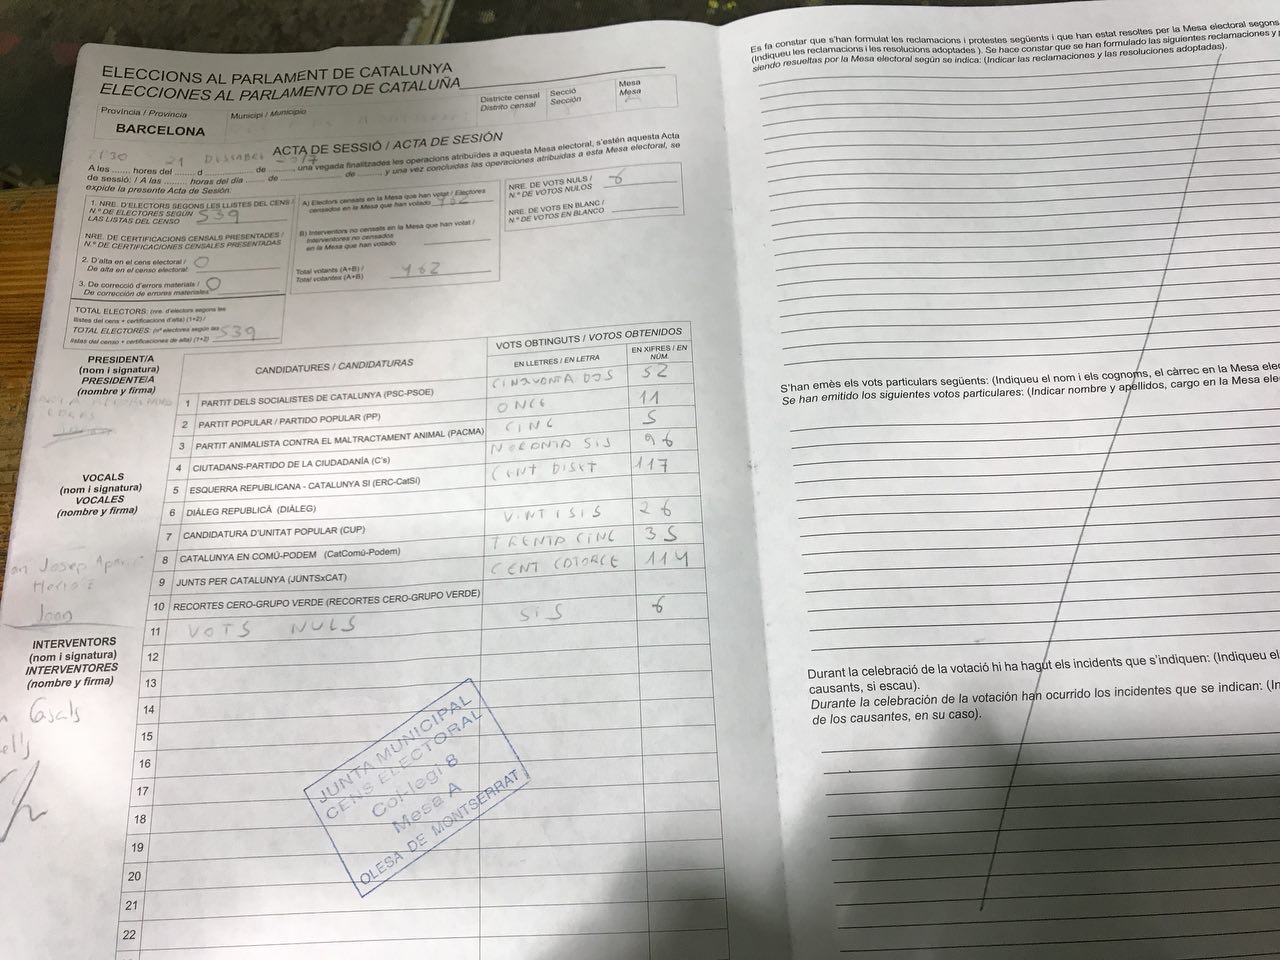 ELECCIONS AL PARLAMENT DE CATALUNYA
ELECCIONES AL PARLAMENTO DE CATALUÑA
Província / Provincia
BARCELONA
Municipi / Municipio
Districte censal
Distrito censal
Secció
Sección
Mesa
Mesa
ACTA DE SESSIÓ / ACTA DE SESIÓN
21:30 21 DESEMBRE 2017
A les ...... hores del ...... d ...... de ......, una vegada finalitzades les operacions atribuïdes a aquesta Mesa electoral, s'estén aquesta Acta
de sessió: / A las ........ horas del día ...... de ...... de ...... y una vez concluidas las operaciones atribuidas a esta Mesa electoral, se
expide la presente Acta de Sesión:
1. NRE. D'ELECTORS SEGONS LES LLISTES DEL CENS /
N.º DE ELECTORES SEGÚN 539
LAS LISTAS DEL CENSO
NRE. DE CERTIFICACIONS CENSALS PRESENTADES /
N.º DE CERTIFICACIONES CENSALES PRESENTADAS
2. D'alta en el cens electoral / 0
De alta en el censo electoral:
3. De correcció d'errors materials / 0
De corrección de errores materiales
TOTAL ELECTORS: (nre. d'electors segons les
llistes del cens + certificacions d'alta) (1+2) /
TOTAL ELECTORES: (nº electores según las 539
listas del censo + certificaciones de alta) (1+2)
A) Electors censats en la Mesa que han votat / Electores
censados en la Mesa que han votado 462
B) Interventors no censats en la Mesa que han votat /
Interventores no censados
en la Mesa que han votado
Total votants (A+B) / 462
Total votantes (A+B)
NRE. DE VOTS NULS / 6
N.º DE VOTOS NULOS
NRE. DE VOTS EN BLANC /
N.º DE VOTOS EN BLANCO
PRESIDENT/A
(nom i signatura)
PRESIDENTE/A
(nombre y firma)
VOCALS
(nom i signatura)
VOCALES
(nombre y firma)
Josep
Joan
INTERVENTORS
(nom i signatura)
INTERVENTORES
(nombre y firma)
Casals
CANDIDATURES / CANDIDATURAS
VOTS OBTINGUTS / VOTOS OBTENIDOS
EN LLETRES / EN LETRA
EN XIFRES / EN NÚM.
1 PARTIT DELS SOCIALISTES DE CATALUNYA (PSC-PSOE) CINQUANTA DOS 52
2 PARTIT POPULAR / PARTIDO POPULAR (PP) ONCE 11
3 PARTIT ANIMALISTA CONTRA EL MALTRACTAMENT ANIMAL (PACMA) CINC 5
4 CIUTADANS-PARTIDO DE LA CIUDADANÍA (C's) NORANTA SIS 96
5 ESQUERRA REPUBLICANA - CATALUNYA SI (ERC-CatSí) CENT DISET 117
6 DIÀLEG REPUBLICÀ (DIÀLEG)
7 CANDIDATURA D'UNITAT POPULAR (CUP) VINTISIS 26
8 CATALUNYA EN COMÚ-PODEM (CatComú-Podem) TRENTA CINC 35
9 JUNTS PER CATALUNYA (JUNTSxCAT) CENT CATORCE 114
10 RECORTES CERO-GRUPO VERDE (RECORTES CERO-GRUPO VERDE)
11 VOTS NULS SIS 6
12
13
14
15
16
17
18
19
20
21
22
JUNTA MUNICIPAL
CENS ELECTORAL
Col·legi 8
Mesa A
OLESA DE MONTSERRAT
Es fa constar que s'han formulat les reclamacions i protestes següents i que han estat resoltes per la Mesa electoral segons
(Indiqueu les reclamacions i les resolucions adoptades ). Se hace constar que se han formulado las siguientes reclamaciones y
siendo resueltas por la Mesa electoral según se indica: (Indicar las reclamaciones y las resoluciones adoptadas).
S'han emès els vots particulars següents: (Indiqueu el nom i els cognoms, el càrrec en la Mesa
Se han emitido los siguientes votos particulares: (Indicar nombre y apellidos, cargo en la Mesa
Durant la celebració de la votació hi ha hagut els incidents que s'indiquen: (Indiqueu
causants, si escau).
Durante la celebración de la votación han ocurrido los incidentes que se indican:
de los causantes, en su caso).